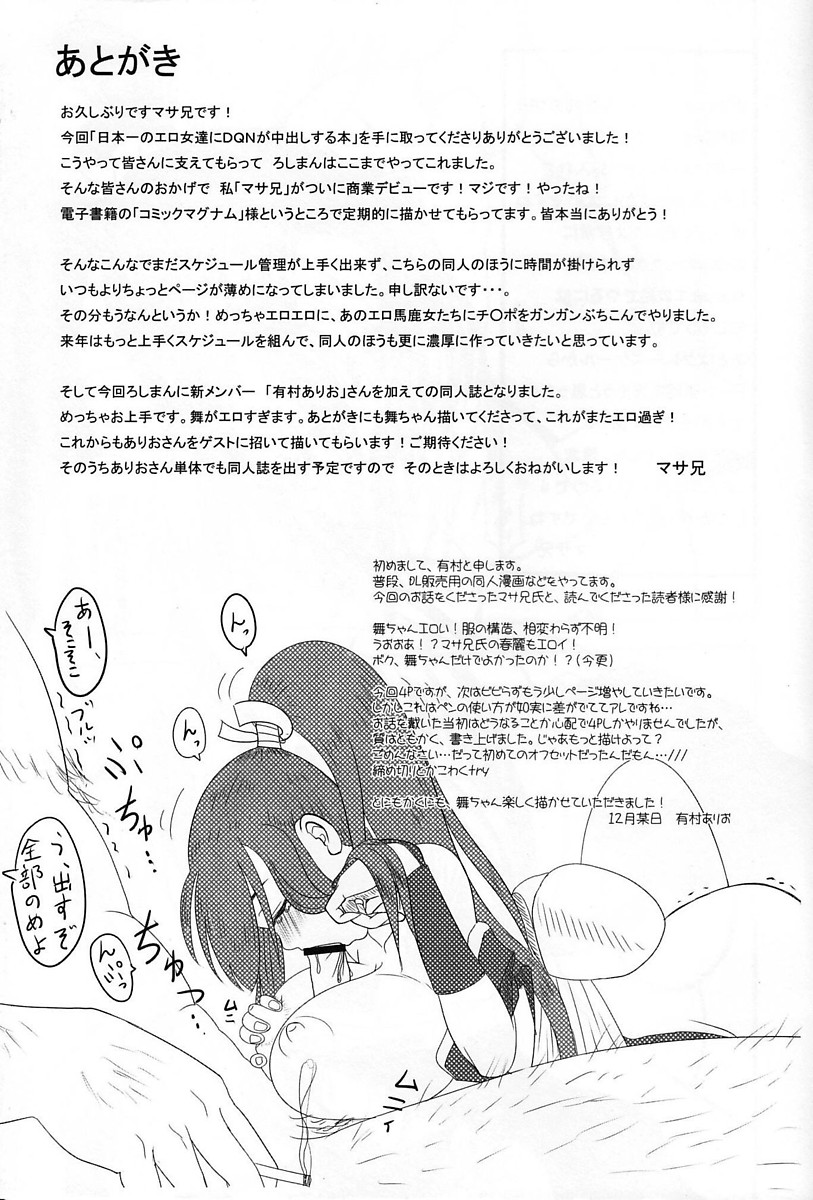 あとがき
お久しぶりですマサ兄です！
今回「日本一のエロ女達にDQNが中出しする本」を手に取ってくださりありがとうございました！
こうやって皆さんに支えてもらって　ろしまんはここまでやってこれました。
そんな皆さんのおかげで　私「マサ兄」がついに商業デビューです！マジです！やったね！
電子書籍の「コミックマグナム」様というところで定期的に描かせてもらってます。皆本当にありがとう！
そんなこんなでまだスケジュール管理が上手く出来ず、こちらの同人のほうに時間が掛けられず
いつもよりちょっとページが薄めになってしまいました。申し訳ないです・・・。
その分もうなんというか！めっちゃエロエロに、あのエロ馬鹿女たちにチ〇ポをガンガンぶちこんでやりました。
来年はもっと上手くスケジュールを組んで、同人のほうも更に濃厚に作っていきたいと思っています。
そして今回ろしまんに新メンバー　「有村ありお」さんを加えての同人誌となりました。
めっちゃお上手です。舞がエロすぎます。あとがきにも舞ちゃん描いてくださって、これがまたエロ過ぎ！
これからもありおさんをゲストに招いて描いてもらいます！ご期待ください！
そのうちありおさん単体でも同人誌を出す予定ですので　そのときはよろしくおねがいします！　　マサ兄
初めまして、有村と申します。
普段、DL販売用の同人漫画などをやってます。
今回のお話をくださったマサ兄氏と、読んでくださった読者様に感謝！
舞ちゃんエロい！服の構造、相変わらず不明！
うおおあ！？マサ兄氏の春麗もエロイ！
ボク、舞ちゃんだけでよかったのか！？(今更)
今回4Pですが、次はビビらずもう少しページ増やしていきたいです。
しかしこれはペンの使い方が如実に差がでててアレですね…
お話を戴いた当初はどうなることか心配で4Pしかやりませんでしたが、
質はともかく、書き上げました。じゃあもっと描けよって？
ごめんなさい…だって初めてのオフセットだったんだもん…///
締め切りとかこわくtry
とにもかくにも、舞ちゃん楽しく描かせていただきました！
12月某日　有村ありお
あー、
そこそこ
ブルッ
んっ
んっ
ぷちゅ…
う、出すぞ
全部のめよ
んっ…ぷぃっ
ちゅっ…
ムニ
ムニィ